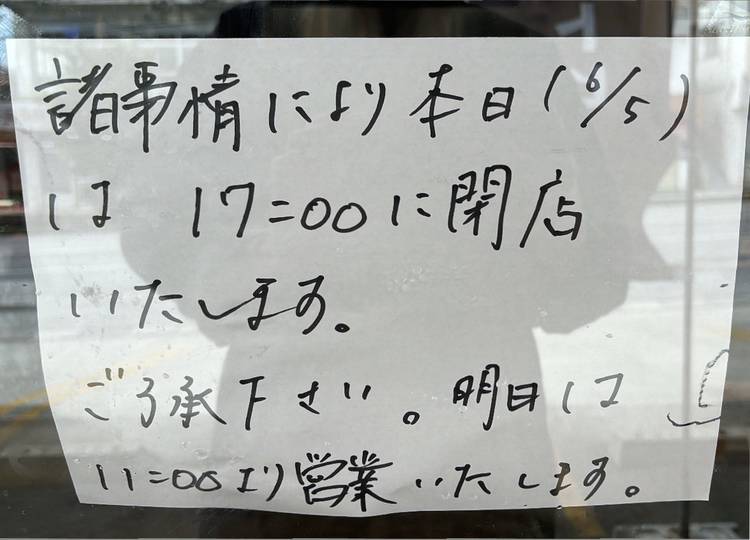 諸事情により本日(6/5)
は 17:00に閉店
いたします。
ご了承下さい。明日は
11:00より営業いたします。